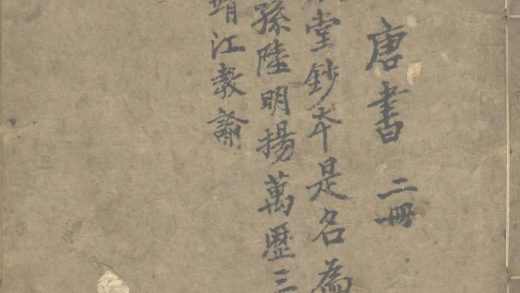 唐書 二冊
堂鈔本是名為
孫陸明揚萬歷三
靖江教諭